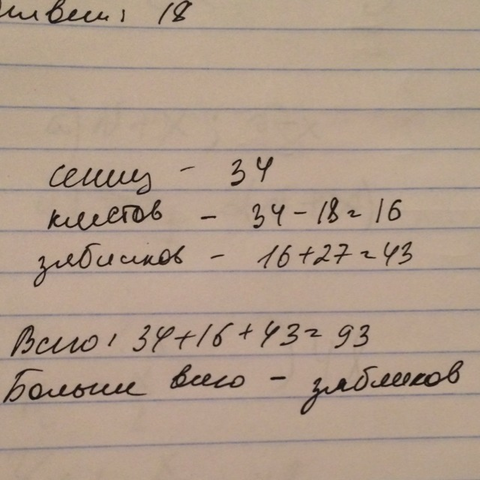 Ответ: 18
синиц - 34
клестов - 34-18=16
зябликов - 16+27=43
Всего: 34+16+43=93
Больше всего - зябликов